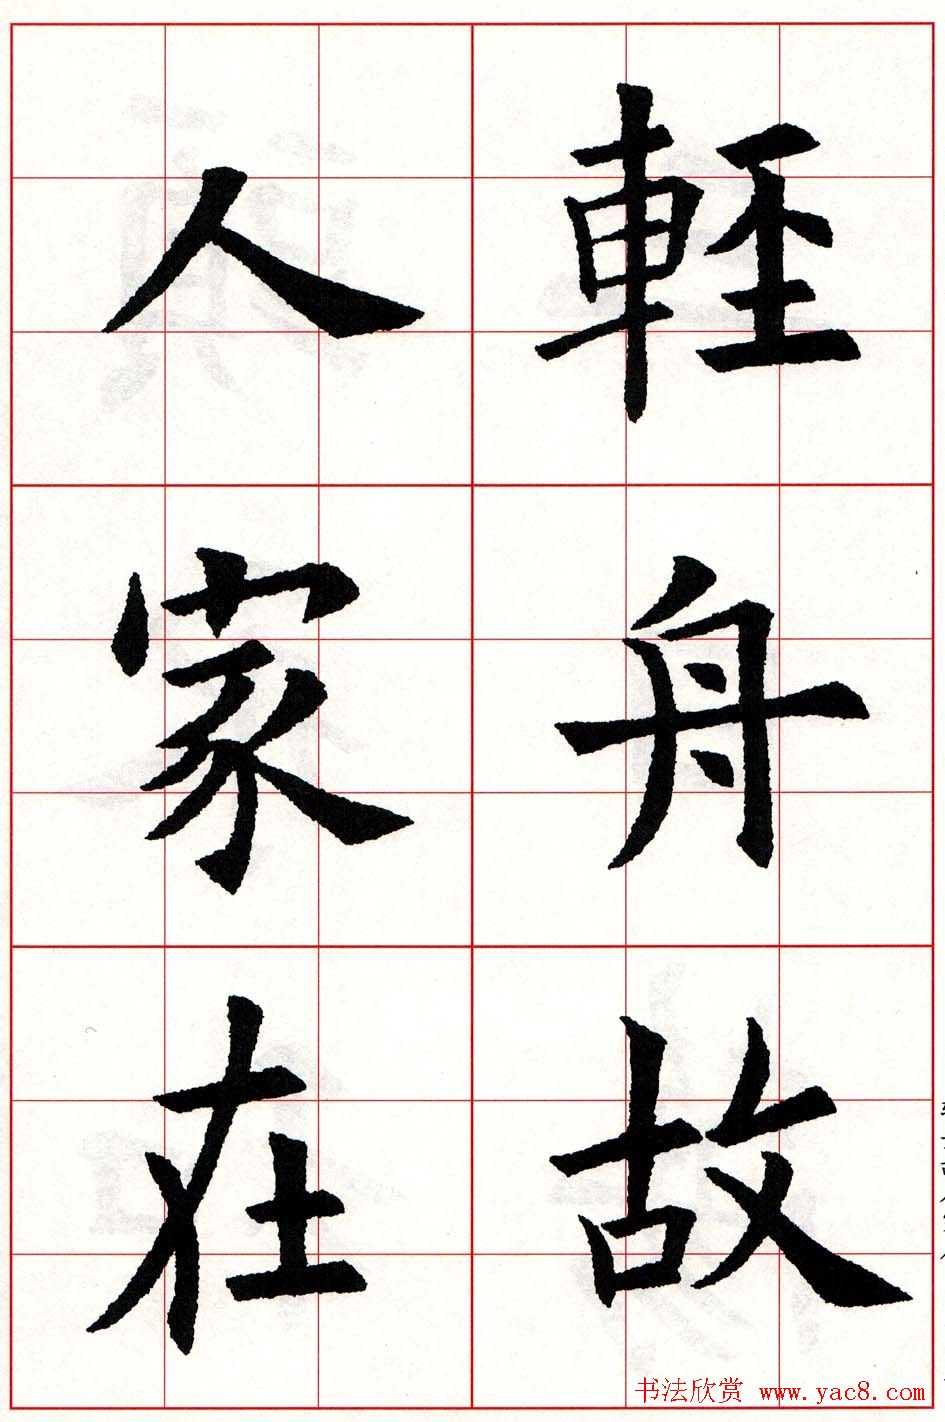 輕舟故
人家在
书法欣赏 www.yac8.com